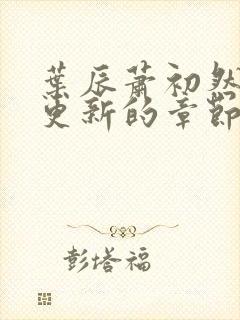 葉辰蕭初然
更新的章節
彭塔福